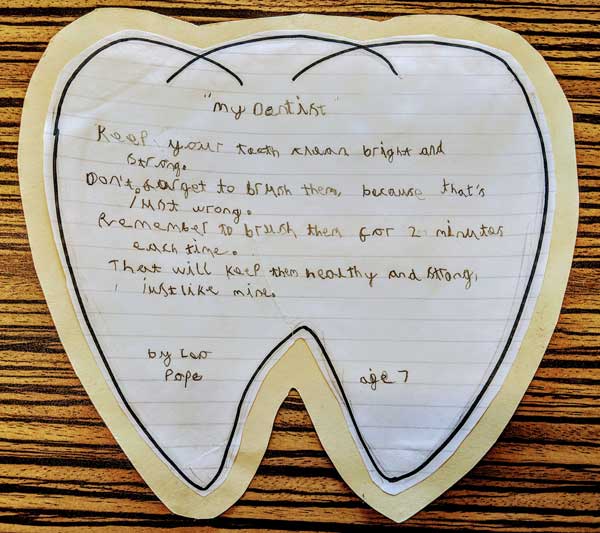 "My Dentist"
Keep your teeth clean bright and
strong.
Don't forget to brush them, because that's
just wrong.
Remember to brush them for 2 minutes
each time.
That will keep them healthy and strong,
just like mine.
by Leo
Pope
age 7